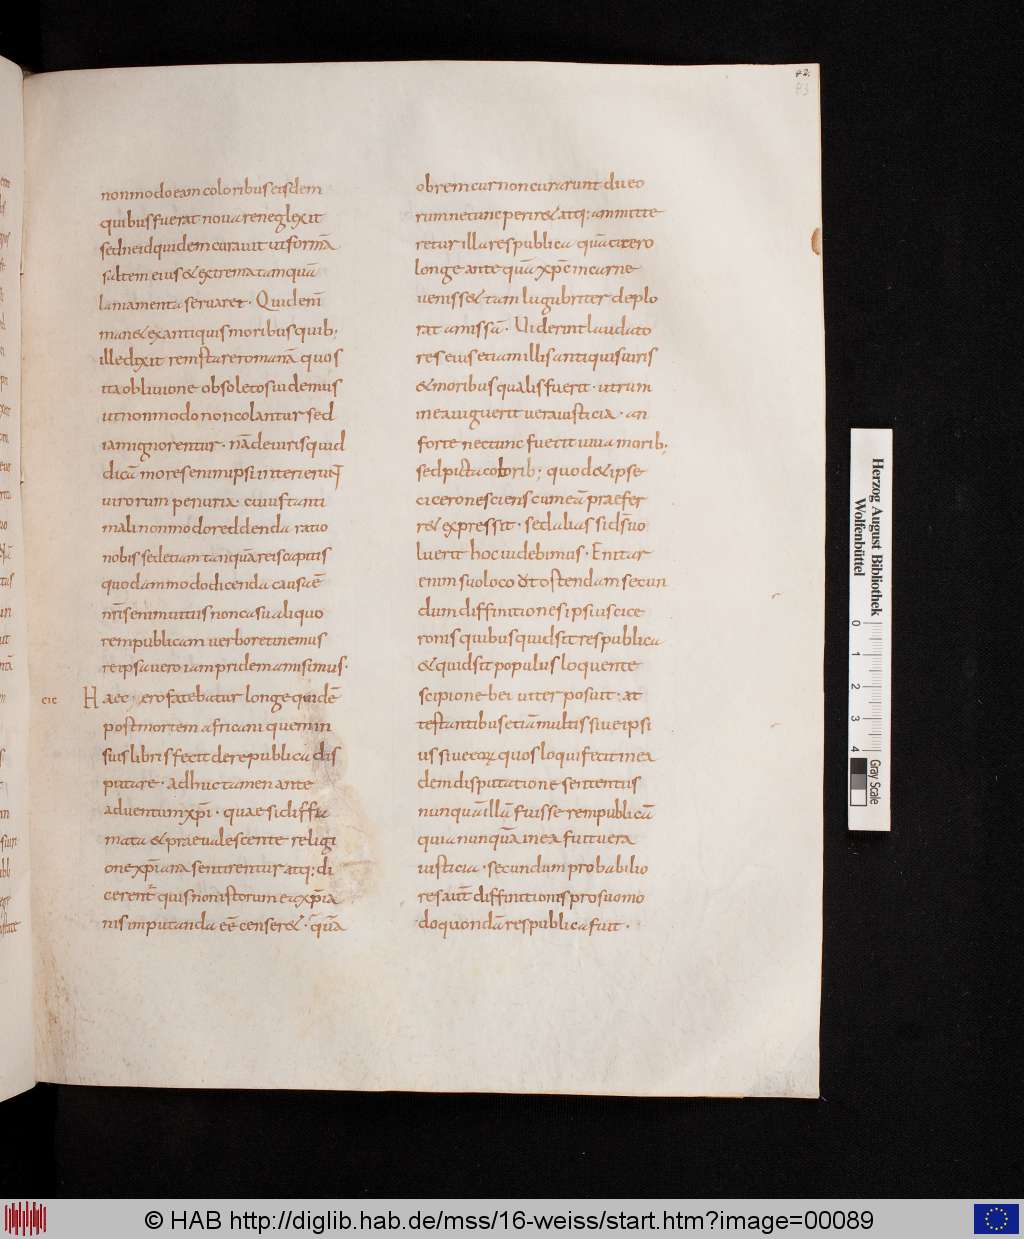 42.
83
nonmodoeamcoloribuseisdem
quibusfuerat nouareneglexit
sedneidquidemcurauit utformā
saltem eius&extrematamquā
liniamentaseruaret · Quidenī
man&exantiquismoribusquib;
illedixit remstareromanā quos
itaobliuione obsoletosuidemus
utnonmodo noncolantur sed
iamignorentur · nā deuirisquid
dicā moresenimipsi interierunt
uirorum penuria · cuiustanti
malinonmodoreddenda ratio
nobis sedetiam tanquā reiscapitis
quodammododicenda causaē
nr̄isenimuitiis noncasualiquo
rempublicam uerboretinemus
reipsauero iampridemamisimus ·
cic Haec uerofatebatur longe quidē
postmortem africani quemin
suislibrisfecit derepublica dis
putare · adhuctamen ante
aduentumxp̄i · quaesidiffa
mata &praeualescente religi
onexp̄iana sentirentur atq; di
cerent̄ quisnonistorum eaxp̄ia
nisimputanda eē censer& · q̄uā
obremcurnoncurarunt dii eo
rum netunc perir& atq; ammitte
retur illarespublica quācicero
longe ante quā xp̄e incarne
ueniss& tam lugubriter deplo
rat amissā · Uiderint laudato
res eius etiam illis antiquisuiris
&moribus qualis fuerit · utrum
ineauiguerit uera iusticia · an
forte nectunc fuerit uiua morib;
sedpictacolorib; quod&ipse
ciceronesciens cumeā praefer
r& expressit · sedalias sid̄suo
luerit hoc uidebimus · Enitar
enim suoloco ut ostendam secun
dumdiffinitionesipsiuscice
ronis quibus quidsit respublica
&quidsit populus loquente
scipione breuiter posuit · at
testantibus etiā multis siueipsi
us siue eorum quosloquifecit inea
demdisputatione sententiis
nunquā illā fuisse rempublicā
quia nunquā inea fuituera
iusticia · secundum probabilio
res aut̄ diffinitiones prosuomo
doquondā respublica fuit ·
Herzog August Bibliothek
Wolfenbüttel
0 1 2 3 4
Gray Scale
© HAB http://diglib.hab.de/mss/16-weiss/start.htm?image=00089